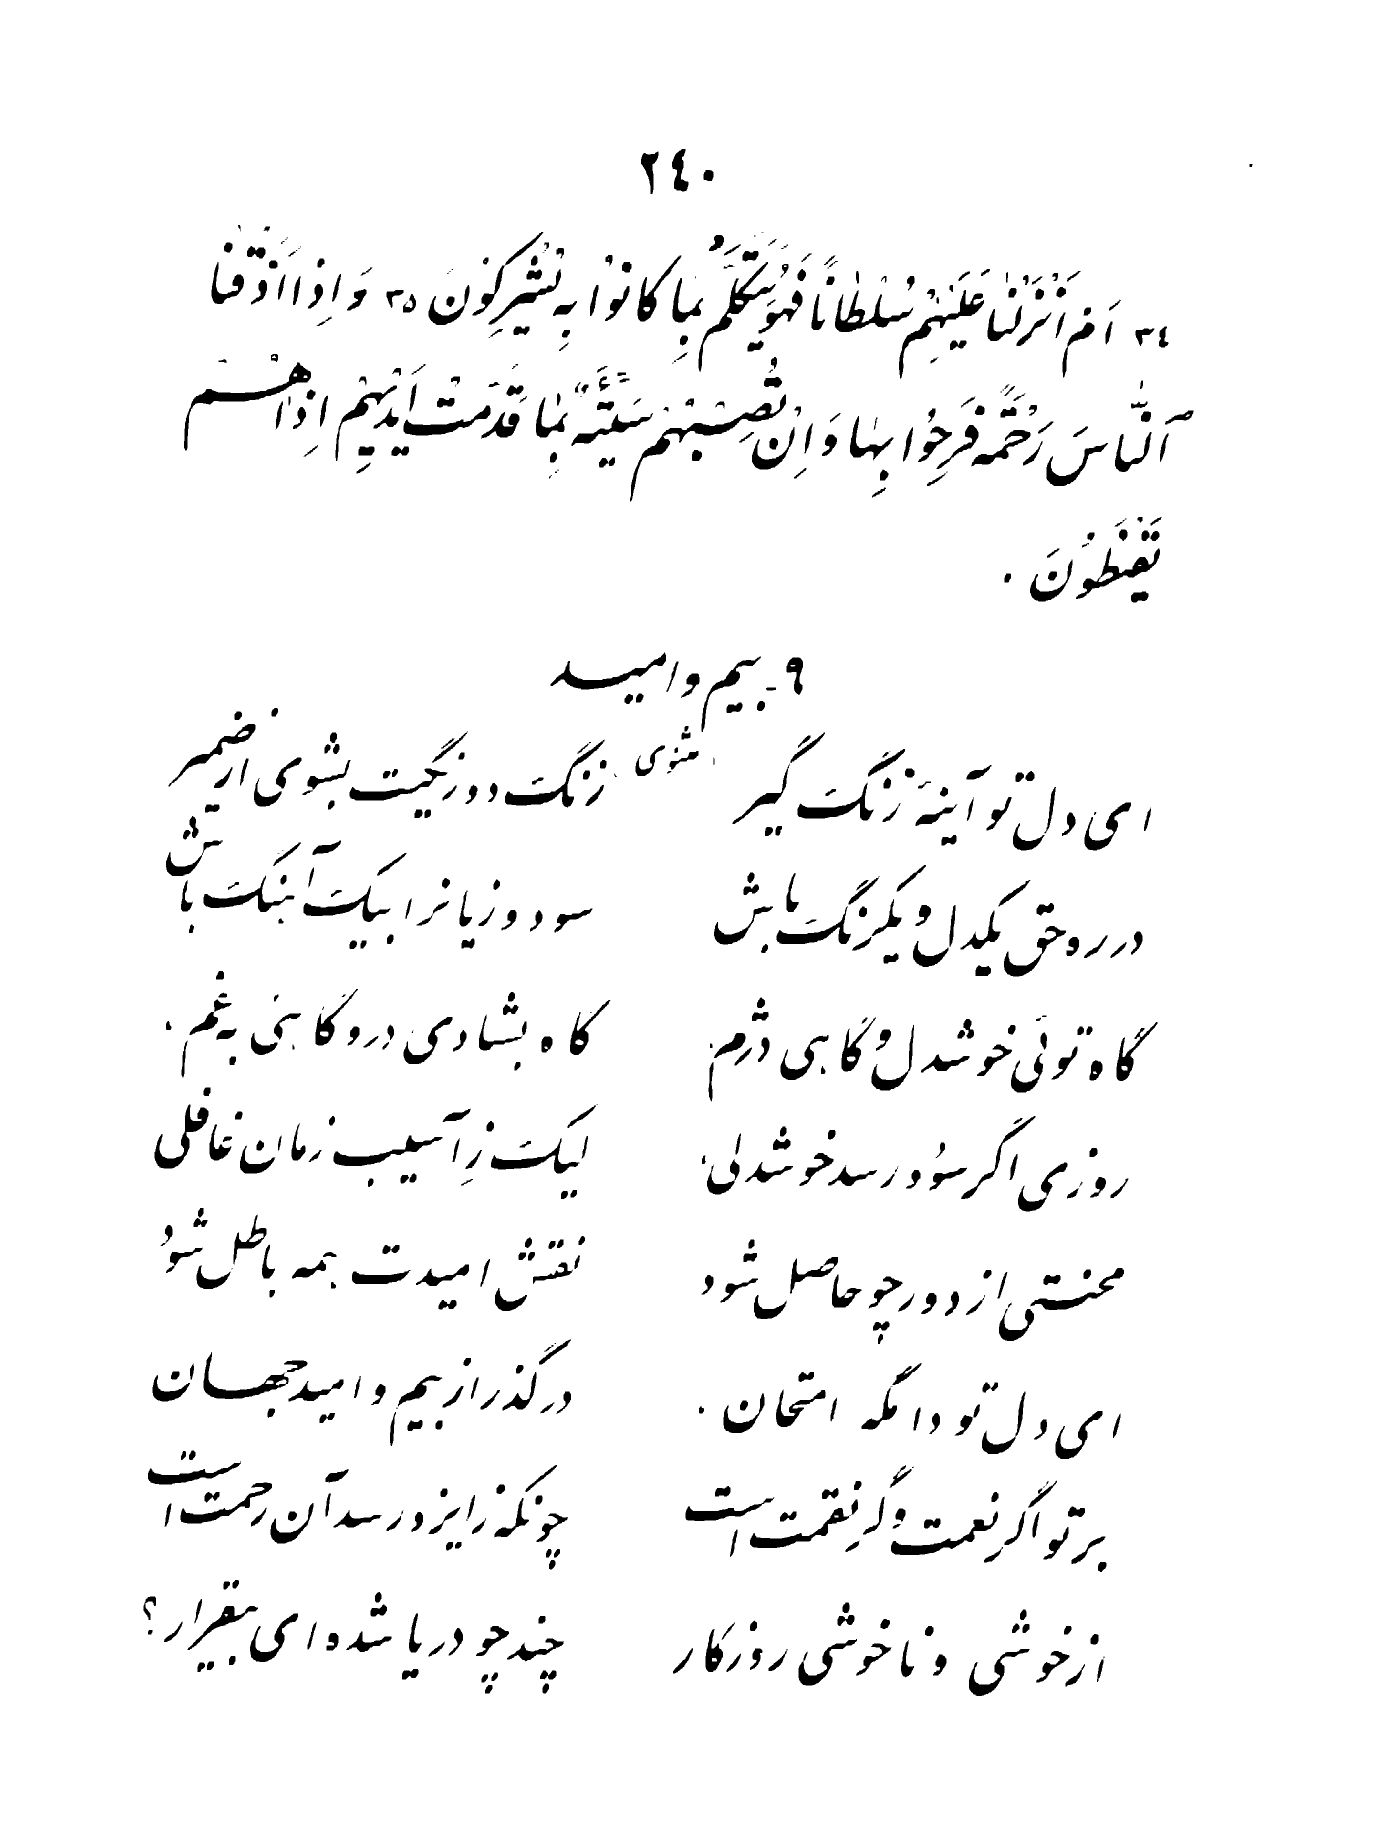 ٢٤٠
٣٤ اَمْ اَنْزَلْنٰا عَلَيْهِمْ سُلْطٰانًا فَهُوَ يَتَكَلَّمُ بِمٰا كانُوْا بِهِ يُشْرِكُونَ ٣٥ وَ اِذٰا اَذَقْنَا
اَلنّٰاسَ رَحْمَةً فَرِحُوا بِهٰا وَ اِنْ تُصِبْهُمْ سَيِّئَةٌ بِمٰا قَدَّمَتْ اَيْدِيْهِمْ اِذٰا هُمْ
يَقْنَطُونَ .
٩ - بیم و امید
مثنوی
ای دل تو آینهٔ زنگ گیر زنگ دو رنگیت بشوی از ضمیر
در ره حق یکدل و یکرنگ باش سود و زیانرا بیک آهنگ باش
گاه توئی خوشدل و گاهی دژم گاه بشادی درو گاهی به غم .
روزی اگر سود رسد خوشدلی لیک زِ آسیب زمان غافلی
محنتی از دور چو حاصل شود نقش امیدت همه باطل شود
ای دل تو دامگه امتحان . درگذر از بیم و امید جهان
بر تو اگر نعمت و گر نقمت است چونکه ز ایزد رسد آن رحمت است
از خوشی و ناخوشی روزگار چند چو دریا شده‌ای بیقرار ؟